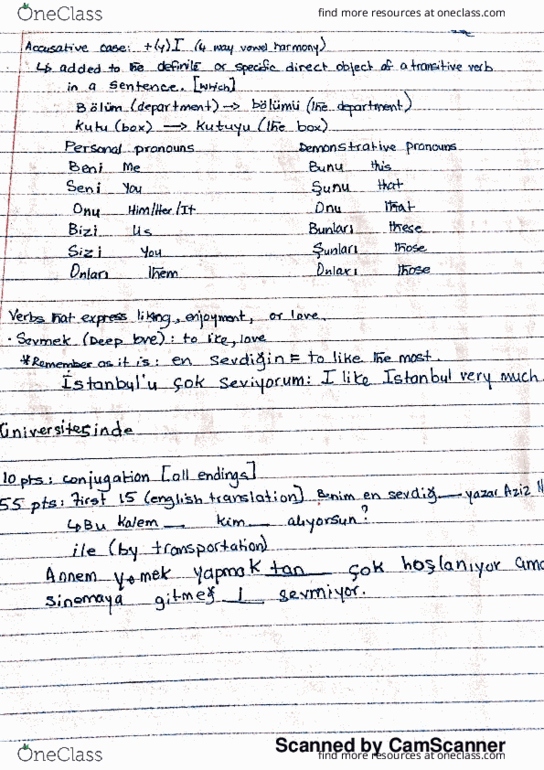 OneClass
find more resources at oneclass.com
Accusative case: +(y)I (4 way vowel harmony)
↳ added to the definite or specific direct object of a transitive verb
in a sentence. [which]
Bölüm (department) → bölümü (the department)
Kutu (box) → Kutuyu (the box)
Personal pronouns Demonstrative pronouns
Beni Me Bunu this
Seni You Şunu that
Onu Him/Her/It Onu that
Bizi Us Bunları these
Sizi You Şunları those
Onları them Onları those
Verbs that express liking, enjoyment, or love.
· Sevmek (Deep love): to like, love
*Remember as it is: en sevdiğin = to like the most.
İstanbul'u çok seviyorum: I like Istanbul very much
Üniversitesinde
10 pts: conjugation [all endings]
55 pts: First 15 (english translation) Benim en sevdiğ__ yazar Aziz
↳ Bu kalem__ kim__ alıyorsun?
ile (by transportation)
Annem yemek yapmak tan çok hoşlanıyor ama
sinemaya gitmeğ i sevmiyor.
Scanned by CamScanner
OneClass
find more resources at oneclass.com